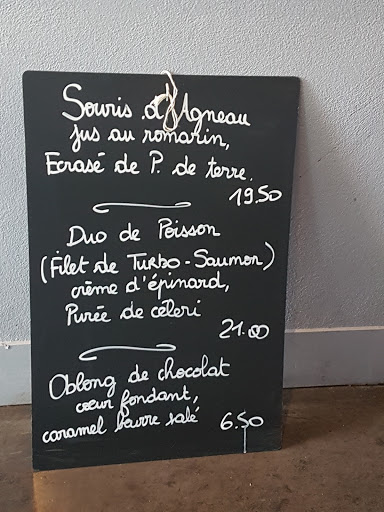 Souris d'Agneau
jus au romarin,
Ecrasé de P. de terre.
19.50
Duo de Poisson
(Filet de Turbo-Saumon)
crème d'épinard,
Purée de céleri
21.00
Oblong de chocolat
cœur fondant,
caramel beurre salé
6.50